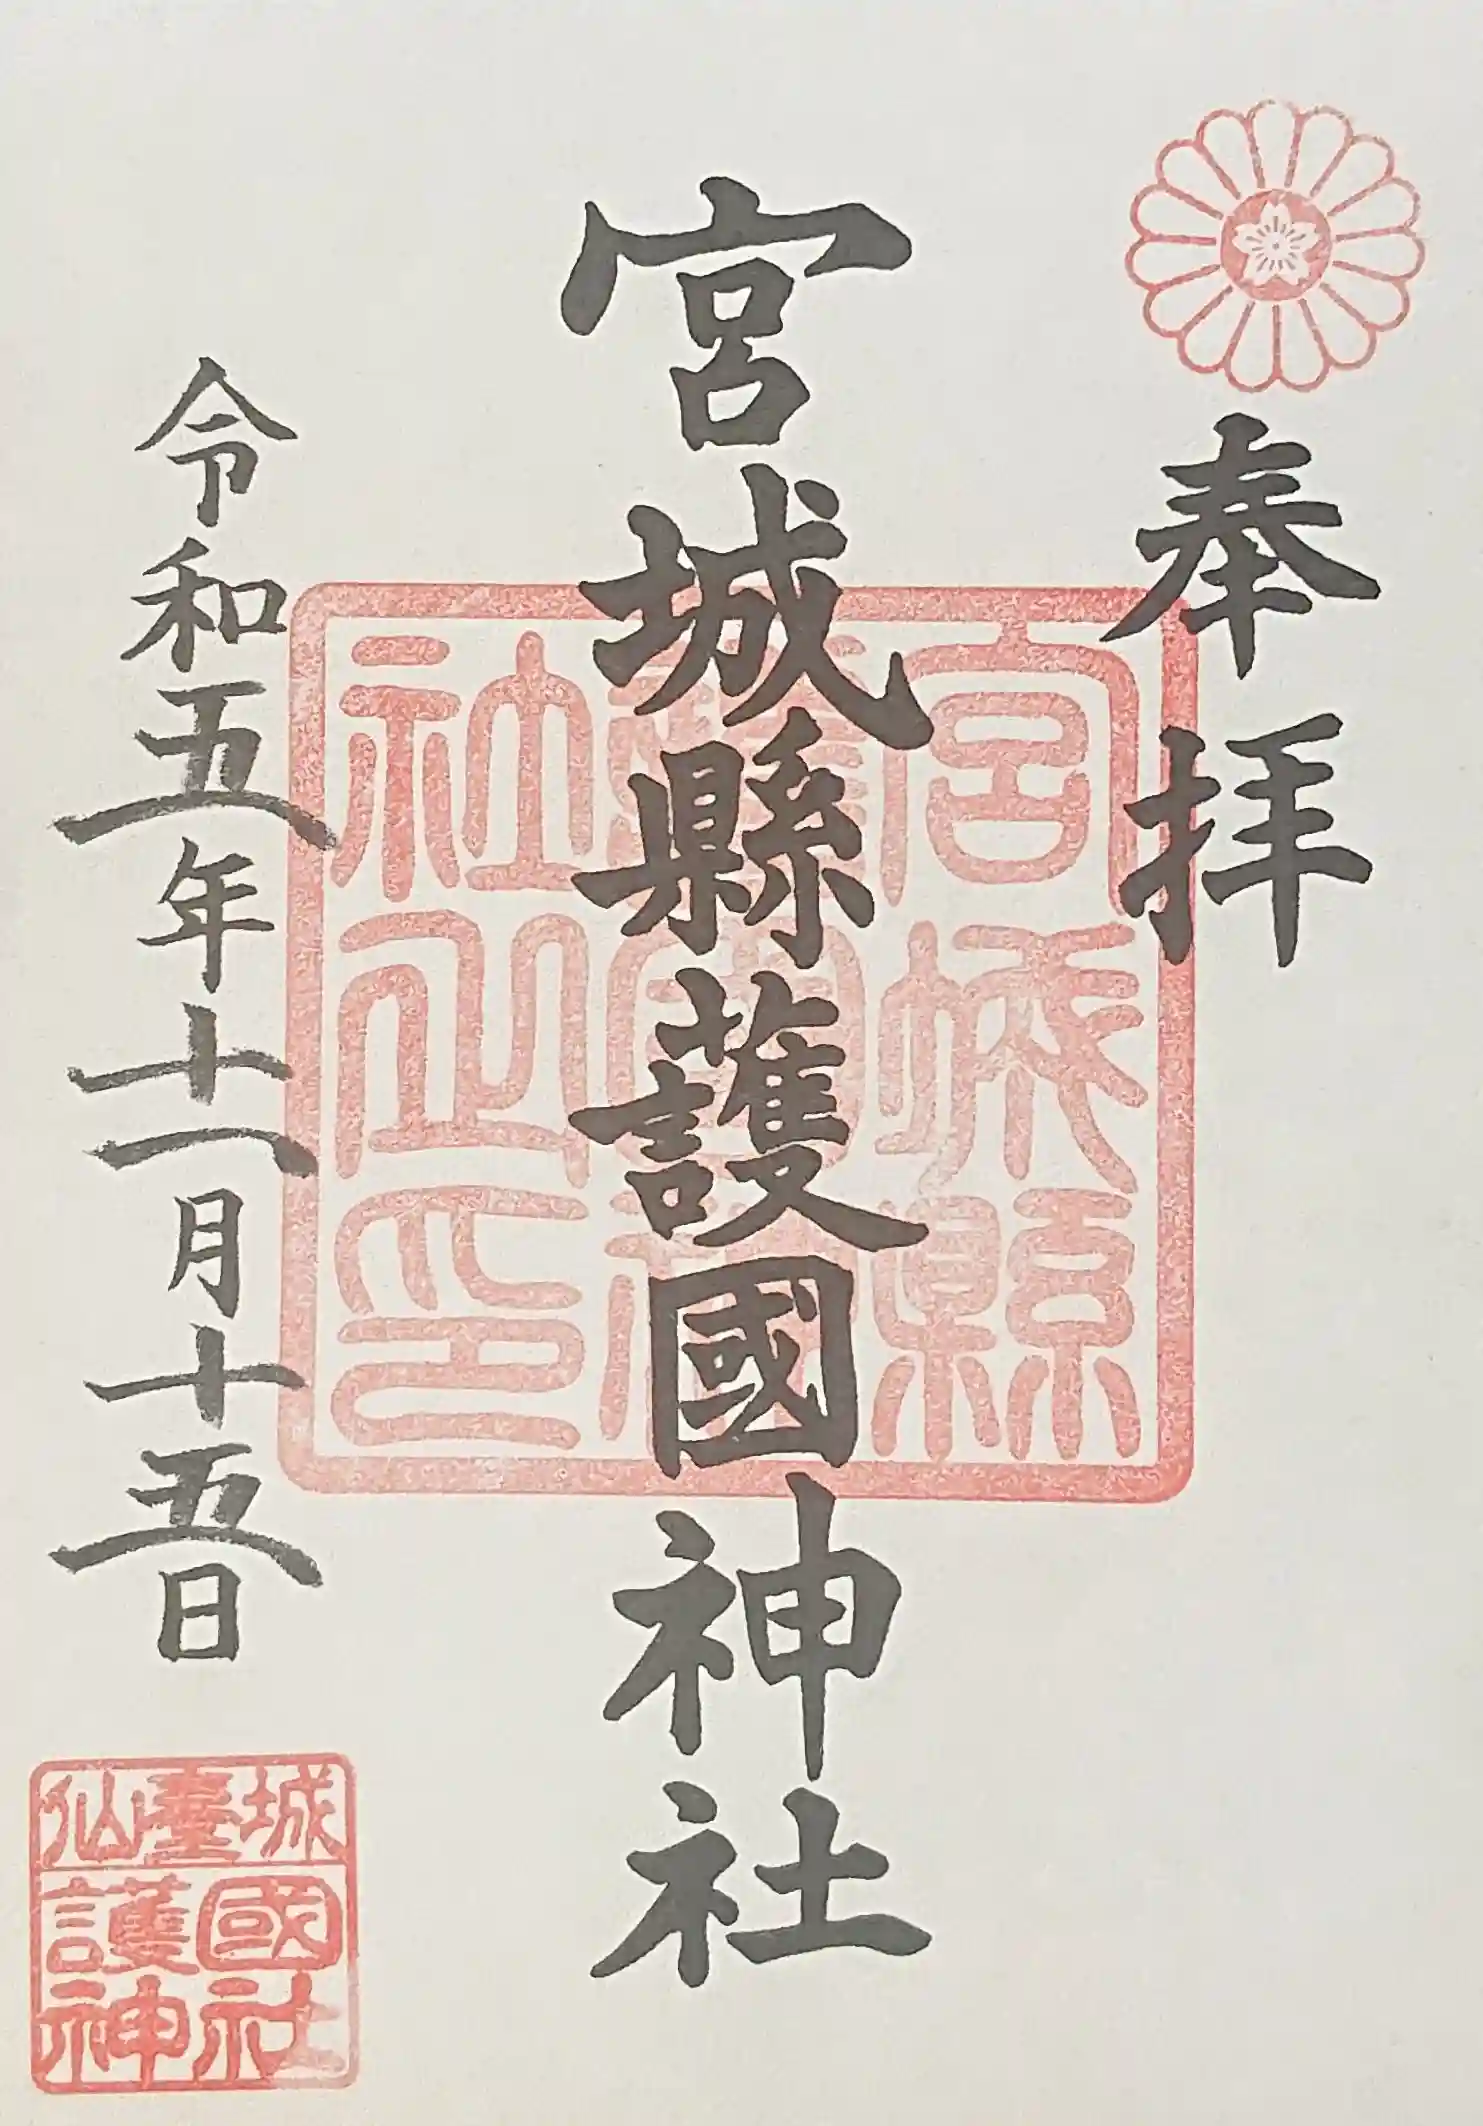 奉拝
宮城縣護國神社
宮城縣
護國神
社之印
令和五年十一月十五日
仙臺城
護國
神社